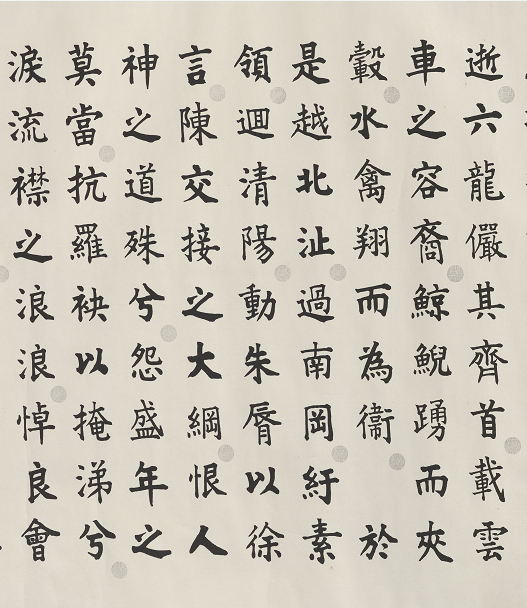 逝六龍儼其齊首載雲
車之容裔鯨鯢踴而夾
轂水禽翔而為衞於
是越北沚過南岡紆素
領迴清陽動朱脣以徐
言陳交接之大綱恨人
神之道殊兮怨盛年之
莫當抗羅袂以掩涕兮
淚流襟之浪浪悼良會